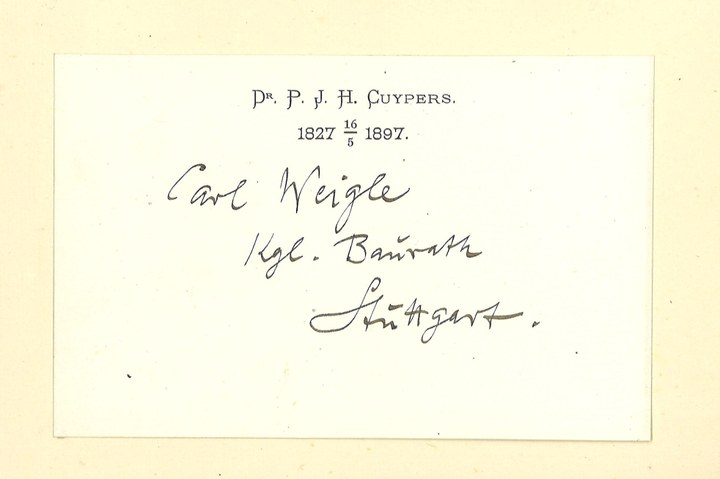 Dr. P. J. H. Cuypers.
1827 16/5 1897.
Carl Weigle
Kgl. Baurath
Stuttgart.